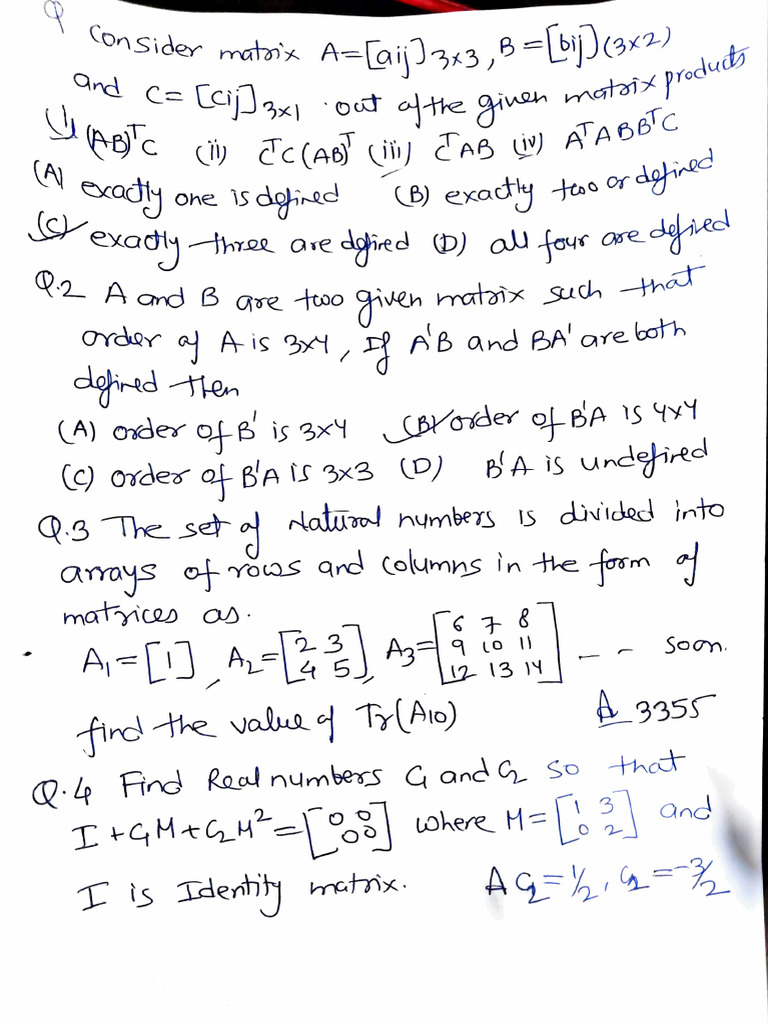 Q Consider matrix A=[aij]3x3, B=[bij](3x2)
and C= [Cij]3x1 . out of the given matrix products
(i) (AB)ᵀC (ii) CᵀC(AB)ᵀ (iii) CᵀAB (iv) AᵀABBᵀC
(A) exactly one is defined (B) exactly two or defined
(C) exactly three are defined (D) all four are defined
Q.2 A and B are two given matrix such that
order of A is 3x4, If A'B and BA' are both
defined then
(A) order of B' is 3x4 (B) order of B'A is 4x4
(C) order of B'A is 3x3 (D) B'A is undefined
Q.3 The set of Natural numbers is divided into
arrays of rows and columns in the form of
matrices as.
A₁=[1], A₂=[2 3 4 5], A₃=[6 7 8 9 10 11 12 13 14] -- soon.
find the value of Tr(A10) A 3355
Q.4 Find Real numbers C₁ and C₂ so that
I+C₁M+C₂M²=[0 0 0 0] where M=[1 3 0 2] and
I is Identity matrix. A C₂=1/2, C₂=-3/2